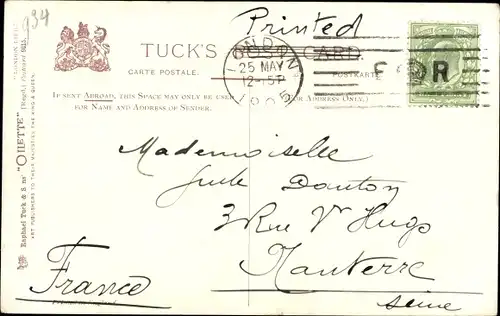 934
Printed
TUCK'S POST CARD.
CARTE POSTALE.
POSTKARTE
LONDON
25 MAY
12-15P
1905
E R
IF SENT ABROAD, THIS SPACE MAY ONLY BE USED
FOR NAME AND ADDRESS OF SENDER.
(FOR ADDRESS ONLY.)
Raphael Tuck & Sons' "OILETTE" [Regd.]
ART PUBLISHERS TO THEIR MAJESTIES THE KING & QUEEN.
Mademoiselle
Danton
3 Rue Vr Hugo
Nanterre
Seine
France